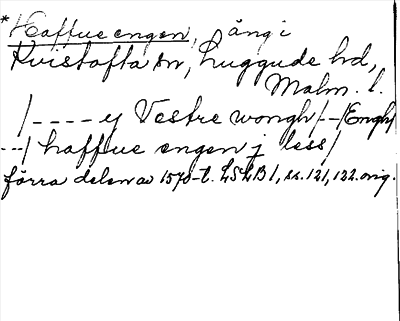 *Haffue engen, äng i
Kvistofta sn, Luggude hd,
Malm. l.
/---- y Vestre wongh/--/Engh/
--/ haffue engen j less/
förra delen av 1570-t. LSLB1, ss. 121, 122. orig.